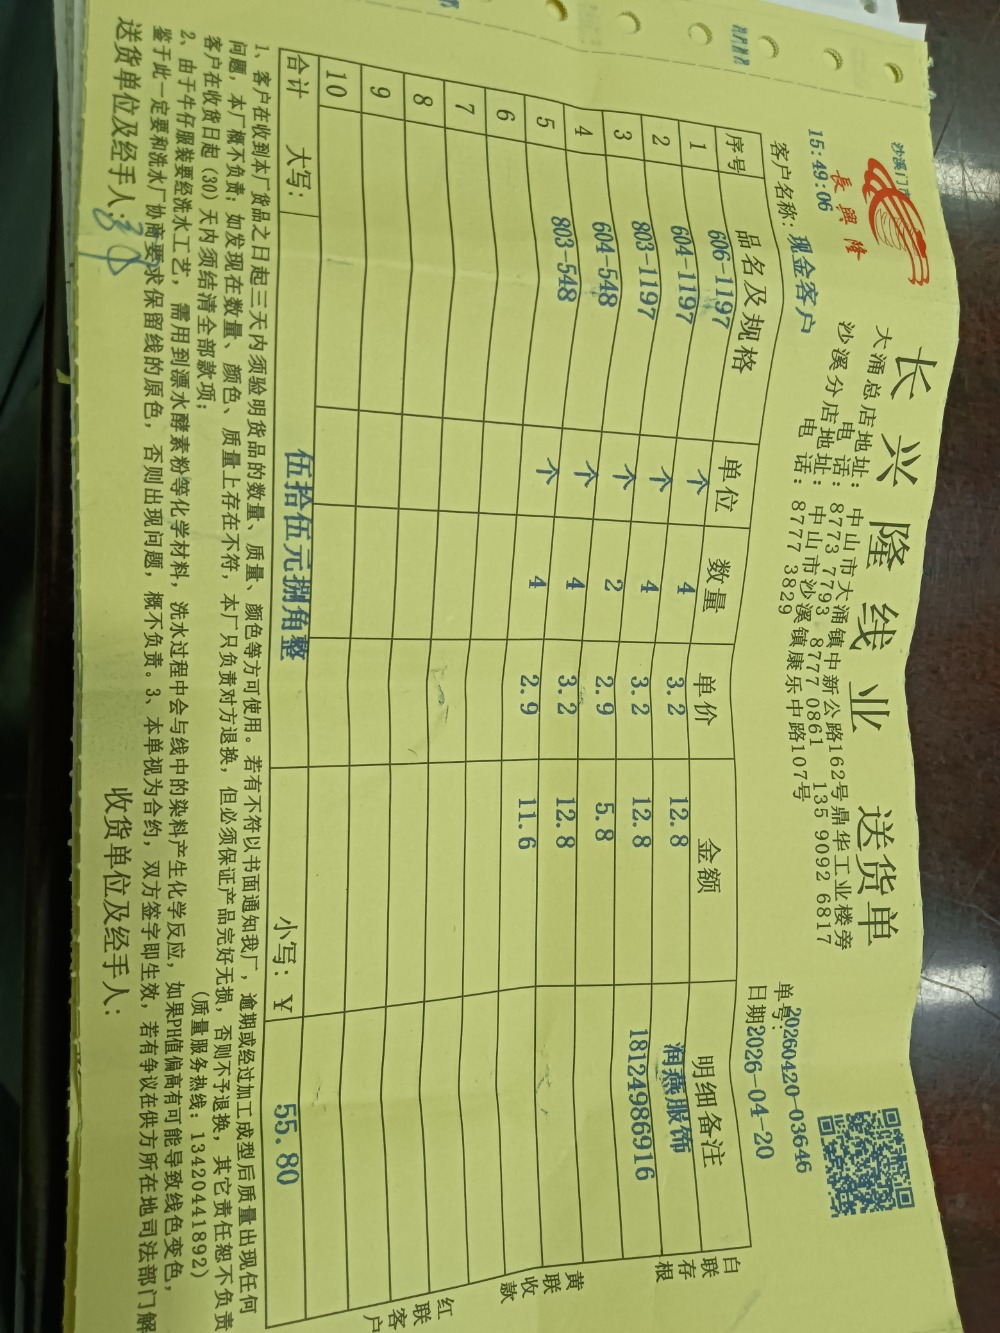 沙溪门市
長興隆
15:49:06
长兴隆线业 送货单
大涌总店地址: 中山市大涌镇中新公路162号鼎华工业楼旁
电话: 8773 7793 8777 0861 135 9092 6817
沙溪分店地址: 中山市沙溪镇康乐中路107号
电话: 8777 3829
单号: 20260420-03646
客户名称: 现金客户
日期2026-04-20
序号 品名及规格 单位 数量 单价 金额 明细备注
1 606-1197 个 4 3.2 12.8 润燕服饰
2 604-1197 个 4 3.2 12.8 18124986916
3 803-1197 个 2 2.9 5.8
4 604-548 个 4 3.2 12.8
5 803-548 个 4 2.9 11.6
6
7
8
9
10
合计 大写: 伍拾伍元捌角整 小写: ¥ 55.80
白联存根
黄联收款
红联客户
1、客户在收到本厂货品之日起三天内须验明货品的数量、质量、颜色等方可使用。若有不符以书面通知我厂,逾期或经过加工成型后质量出现任何
问题,本厂概不负责;如发现在数量、颜色、质量上存在不符,本厂只负责对方退换,但必须保证产品完好无损,否则不予退换,其它责任恕不负责
客户在收货日起(30)天内须结清全部款项; (质量服务热线: 13420441892)
2、由于牛仔服装要经洗水工艺,需用到漂水酵素粉等化学材料,洗水过程中会与线中的染料产生化学反应,如果PH值偏高有可能导致线色变色,
鉴于此一定要和洗水厂协商要求保留线的原色,否则出现问题,概不负责。3、本单视为合约,双方签字即生效,若有争议在供方所在地司法部门解
送货单位及经手人: 收货单位及经手人: